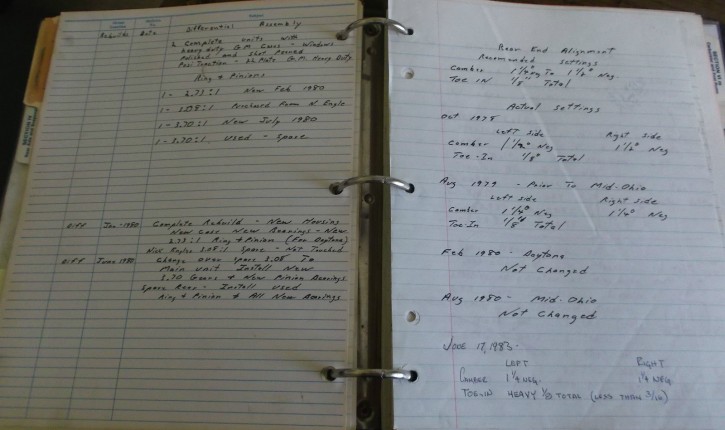 Rebuilds Date Differential Assembly
2 Complete Units with
heavy duty G.M. Cases - Windows
Polished and Shot Peened
Posi-Traction - 22 Plate G.M. Heavy Duty
Ring & Pinions
1 - 2.73:1 New Feb 1980
1 - 3.08:1 Purchased From N. Engle
1 - 3.70:1 New July 1980
1 - 3.70:1 Used - Spare
DIFF Jan-1980 Complete Rebuild - New Housing
New Case New Bearings - New
2.73:1 Ring & Pinion (For Daytona)
Nick Engles 3.08:1 Spare - Not Touched
DIFF June 1980 Change over Spare 3.08 To
Main unit Install New
3.70 Gears & New Pinion Bearings
Spare Rear - Install used
Ring & Pinion & All New Bearings
Rear End Alignment
Recomended Settings
Camber 1 1/4° Neg To 1 1/2° Neg
Toe IN 1/8" Total
Actual Settings
Oct 1978
Left Side Right Side
Camber 1 1/2° Neg 1 1/2° Neg
Toe-In 1/8" Total
Aug 1979 - Prior To Mid-Ohio
Left Side Right Side
Camber 1 1/4° Neg 1 1/4° Neg
Toe-In 1/8" Total
Feb 1980 - Daytona
Not Changed
Aug 1980 - Mid-Ohio
Not Changed
JUNE 17, 1983 -
LEFT RIGHT
CAMBER 1 1/4 NEG. 1 1/4 NEG.
TOE-IN HEAVY 1/8 TOTAL (LESS THAN 3/16)